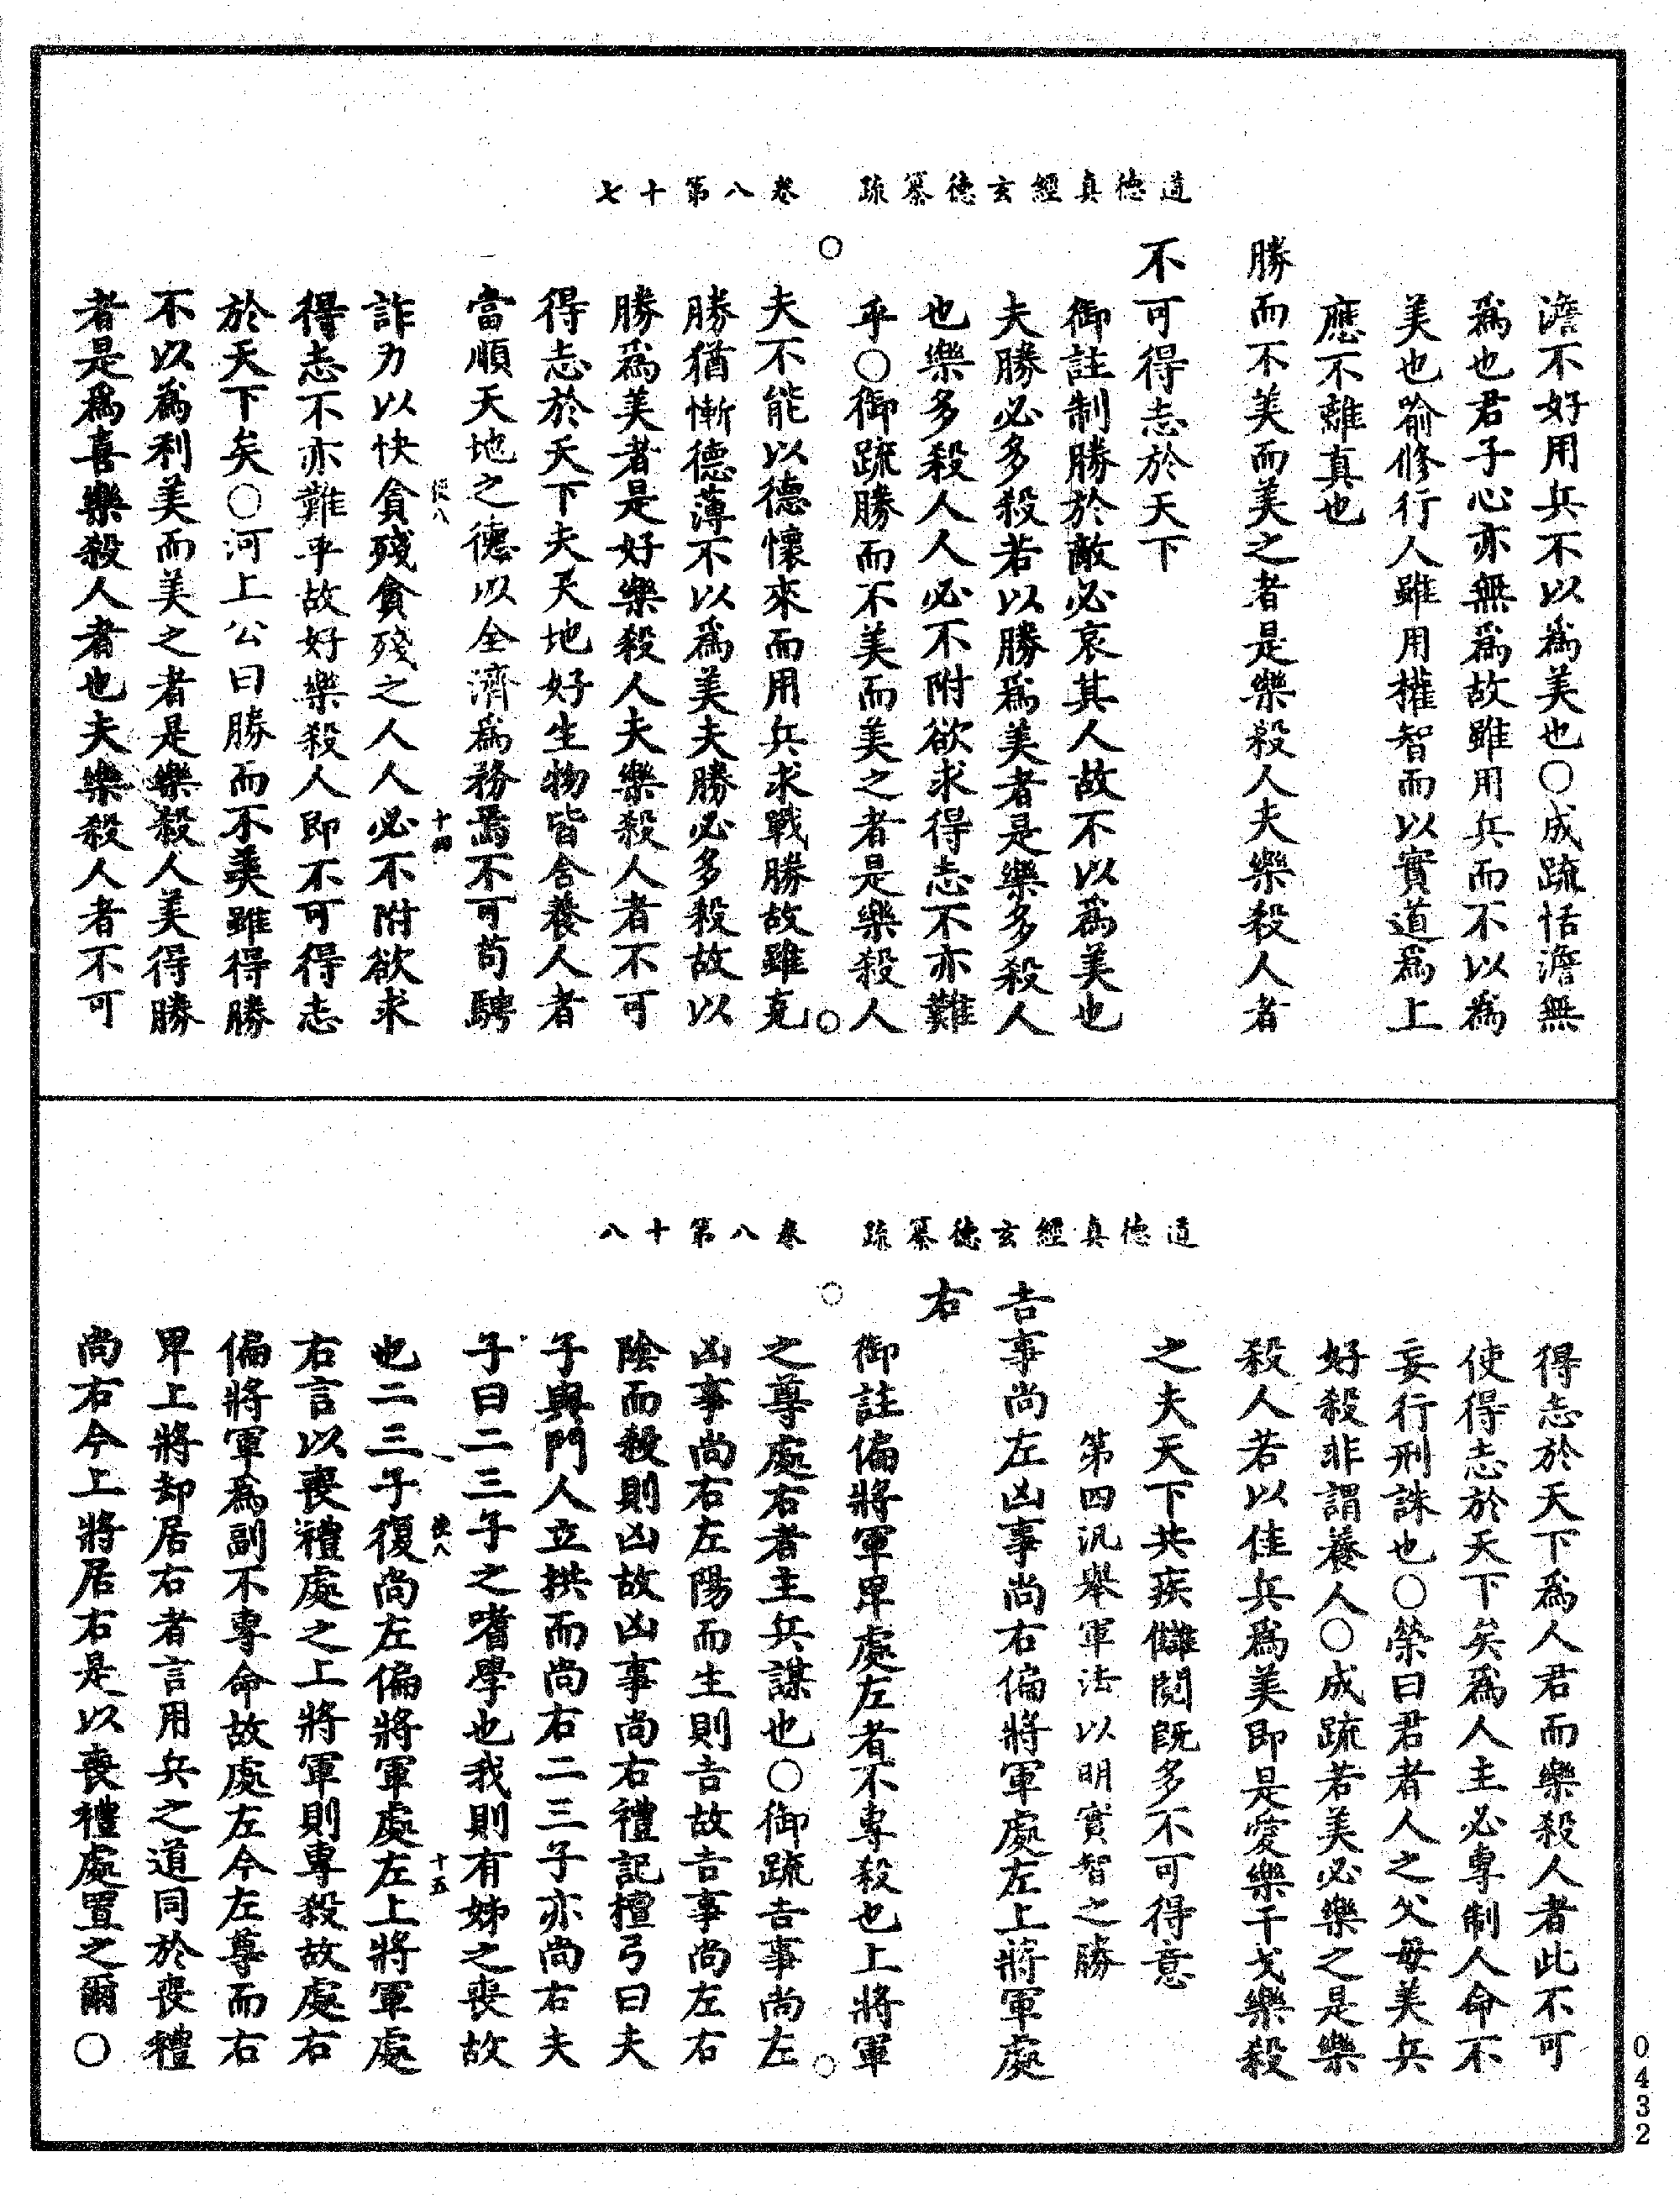 道德真經玄德纂疏　卷八第十七
澹不好用兵不以為美也○成疏恬澹無
為也君子心亦無為故雖用兵而不以為
美也喻修行人雖用權智而以實道為上
應不離真也
勝而不美而美之者是樂殺人夫樂殺人者
不可得志於天下
御註制勝於敵必哀其人故不以為美也
夫勝必多殺若以勝為美者是樂多殺人
也樂多殺人人必不附欲求得志不亦難
乎○御疏勝而不美而美之者是樂殺人
夫不能以德懷來而用兵求戰勝故雖克
勝猶慚德薄不以為美夫勝必多殺故以
勝為美者是好樂殺人夫樂殺人者不可
得志於天下夫天地好生物皆含養人者
當順天地之德以全濟為務焉不可苟騁
使八　十四
詐力以快貪殘貪殘之人人必不附欲求
得志不亦難乎故好樂殺人即不可得志
於天下矣○河上公曰勝而不美雖得勝
不以為利美而美之者是樂殺人美得勝
者是為喜樂殺人者也夫樂殺人者不可
道德真經玄德纂疏　卷八第十八
得志於天下為人君而樂殺人者此不可
使得志於天下矣為人主必專制人命不
妄行刑誅也○榮曰君者人之父母美兵
好殺非謂養人○成疏若美必樂之是樂
殺人若以佳兵為美即是愛樂干戈樂殺
之夫天下共疾讎䦧既多不可得意
第四汎舉軍法以明實智之勝
吉事尚左凶事尚右偏將軍處左上將軍處
右
御註偏將軍卑處左者不專殺也上將軍
之尊處右者主兵謀也○御疏吉事尚左
凶事尚右左陽而生則吉故吉事尚左右
陰而殺則凶故凶事尚右禮記檀弓曰夫
子與門人立拱而尚右二三子亦尚右夫
子曰二三子之嗜學也我則有姊之喪故
使八　十五
也二三子復尚左偏將軍處左上將軍處
右言以喪禮處之上將軍則專殺故處右
偏將軍為副不專命故處左今左尊而右
卑上將却居右者言用兵之道同於喪禮
尚右今上將居右是以喪禮處置之爾○
0432